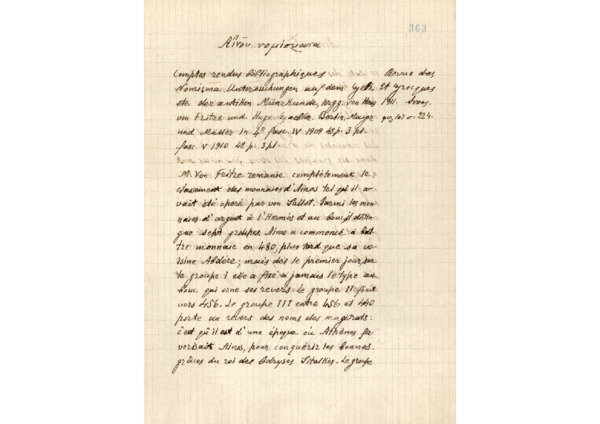 363
Αἴνου νομίσματα
Comptes rendus bibliographiques Revue des
Nomisma Untersuchungen auf dem Gebi- Et. grecques
ete der antiken Münzkunde, hrgg. von Hans 1911.
von Fritze und Hugo Gaebler. Berlin, Mayer
und Müller in 4º fasc. IV 1909 42 p. 3 pl.
fasc. V 1910 42 p. 3 pl.
M. Von Fritze remanie complètement le
classement des monnaies d'Ainos tel qu'il a-
vait été opéré par von Sallet. Parmi les mon-
naies d'argent à l'Hermès et au bouc il distin-
gue sept groupes. Ainos a commencé à bat-
tre monnaie en 480, plus tard que sa vo-
isine Abdère; mais dès le premier jour
le groupe I elle a fixé à jamais le type au
bouc qui orne ses revers. Le groupe II finit
vers 456. Le groupe III entre 456 et 440
porte au revers des noms des magistrats:
c'est qu'il est d'une époque où Athènes fa-
vorisait Ainos, pour conquérir les bonnes
grâces du roi des Odryses Sitalkès. Le groupe